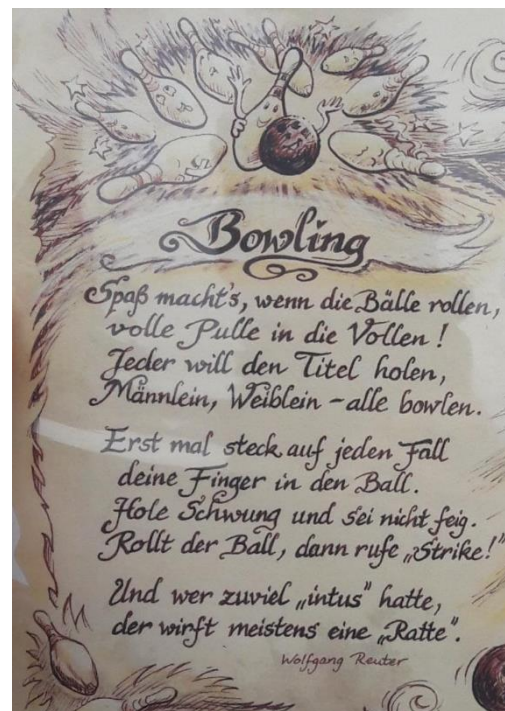 Bowling
Spaß macht's, wenn die Bälle rollen,
volle Pulle in die Vollen!
Jeder will den Titel holen,
Männlein, Weiblein - alle bowlen.
Erst mal steck auf jeden Fall
deine Finger in den Ball.
Hole Schwung und sei nicht feig.
Rollt der Ball, dann rufe „Strike!"
Und wer zuviel „intus" hatte,
der wirft meistens eine „Ratte".
Wolfgang Reuter